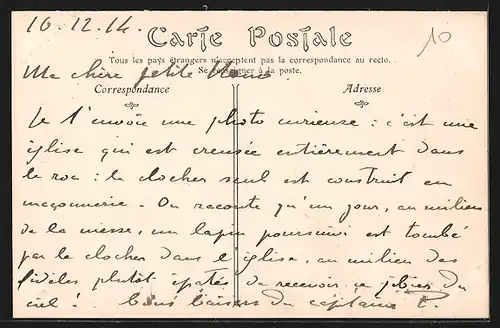 16.12.14.
10
Carte Postale
Tous les pays étrangers n'acceptent pas la correspondance au recto.
Se renseigner à la poste.
Ma chère petite
Correspondance
Adresse
Je t'envoie une photo curieuse : c'est une
église qui est creusée entièrement dans
le roc : le clocher seul est construit en
maçonnerie. On raconte qu'un jour, au milieu
de la messe, un lapin poursuivi est tombé
par le clocher dans l'église, au milieu des
fidèles plutôt épatés de recevoir ce gibier du
ciel ! Bons baisers du capitaine